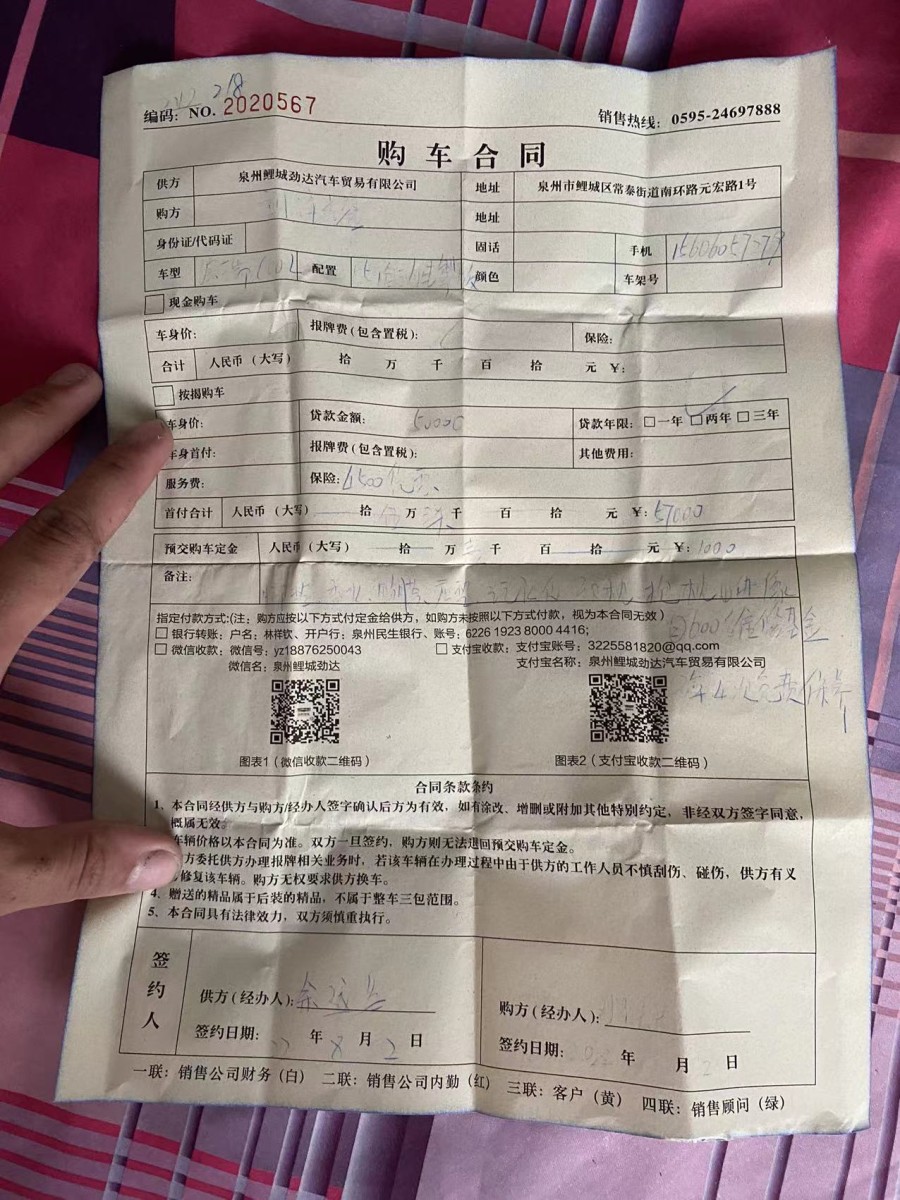 编码：NO. 2020567
218
销售热线：0595-24697888
购车合同
供方 泉州鲤城劲达汽车贸易有限公司 地址 泉州市鲤城区常泰街道南环路元宏路1号
购方 地址
身份证/代码证 固话 手机
车型 配置 颜色 车架号
现金购车
车身价： 报牌费(包含置税)： 保险：
合计 人民币（大写） 拾 万 千 百 拾 元 ￥：
按揭购车
车身价： 贷款金额： 50000 贷款年限：□一年 □两年 □三年
车身首付： 报牌费(包含置税)： 其他费用：
服务费： 保险：4500
首付合计 人民币（大写） 拾 万 千 百 拾 元 ￥：57000
预交购车定金 人民币（大写） 拾 万 千 百 拾 元 ￥：1000
备注：
指定付款方式:(注：购方应按以下方式付定金给供方，如购方未按照以下方式付款，视为本合同无效）
600维修基金
□ 银行转账：户名：林祥钦、开户行：泉州民生银行、账号：6226 1923 8000 4416;
□ 微信收款：微信号：yz18876250043 □ 支付宝收款：支付宝账号：3225581820@qq.com
微信名：泉州鲤城劲达 支付宝名称：泉州鲤城劲达汽车贸易有限公司
年4次免费保养
图表1（微信收款二维码） 图表2（支付宝收款二维码）
合同条款条约
1、本合同经供方与购方/经办人签字确认后方为有效，如有涂改、增删或附加其他特别约定，非经双方签字同意，
概属无效。
车辆价格以本合同为准。双方一旦签约，购方则无法退回预交购车定金。
方委托供方办理报牌相关业务时，若该车辆在办理过程中由于供方的工作人员不慎刮伤、碰伤，供方有义
修复该车辆。购方无权要求供方换车。
4、赠送的精品属于后装的精品，不属于整车三包范围。
5、本合同具有法律效力，双方须慎重执行。
签约人
供方（经办人）： 购方（经办人）：
签约日期： 年 8 月 2 日 签约日期： 年 月 2 日
一联：销售公司财务（白） 二联：销售公司内勤（红） 三联：客户（黄） 四联：销售顾问（绿）